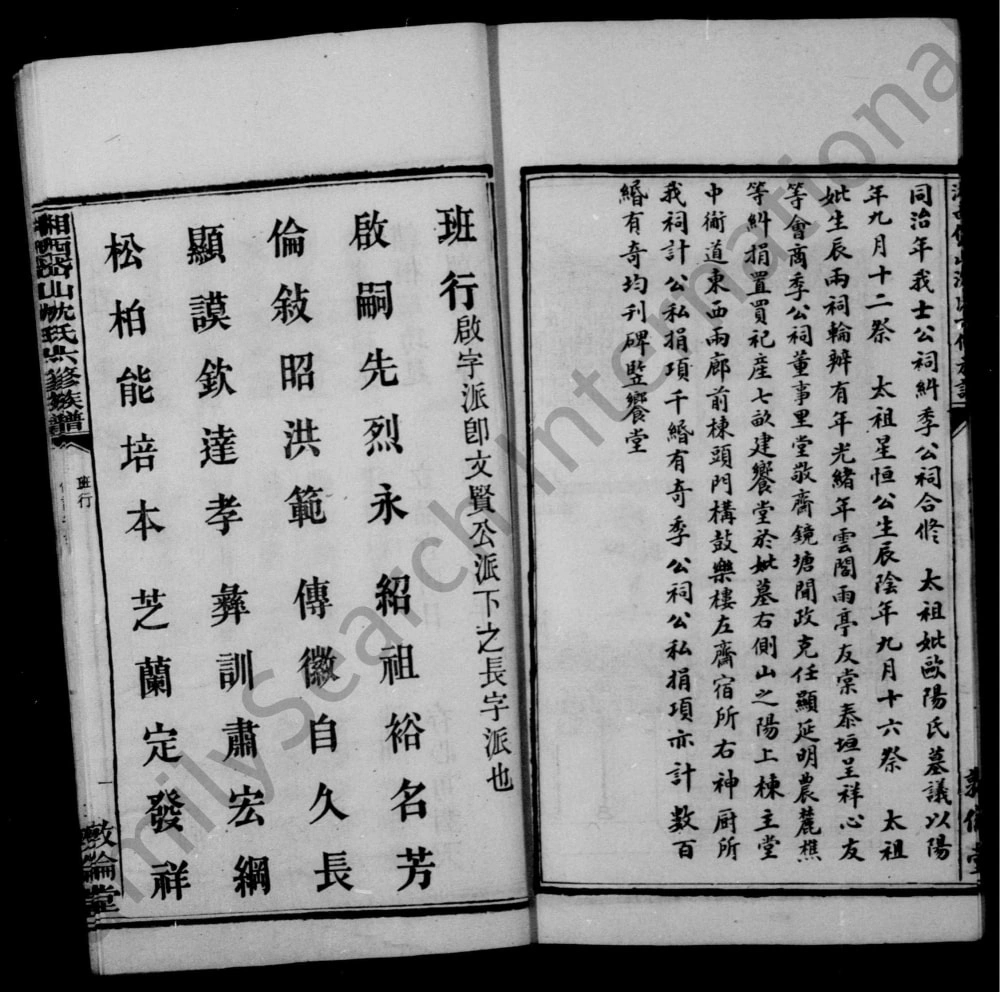 同治年我士公祠糾季公祠合修　太祖妣歐陽氏墓議以陽
年九月十二祭　太祖星恒公生辰陰年九月十六祭　太祖
妣生辰兩祠輪辦有年光緒年雲閣雨亭友棠泰垣呈祥心友
等會商季公祠董事里堂敬齋鏡塘閒政克任顯延明農麓樵
等糾捐置買祀產七畝建饗堂於妣墓右側山之陽上棟主堂
中衕道東西兩廊前棟頭門構鼓樂樓左齋宿所右神厨所
我祠計公私捐項千緡有奇季公祠公私捐項亦計數百
緡有奇均刋碑豎饗堂
班行 啟字派卽文賢公派下之長字派也
啟嗣先烈永　紹祖裕名芳
倫敍昭洪範　傳徽自久長
顯謨欽達孝　彝訓肅宏綱
松柏能培本　芝蘭定發祥
湘西岱山沈氏六修族譜
班行
一
敦倫堂
FamilySearch International